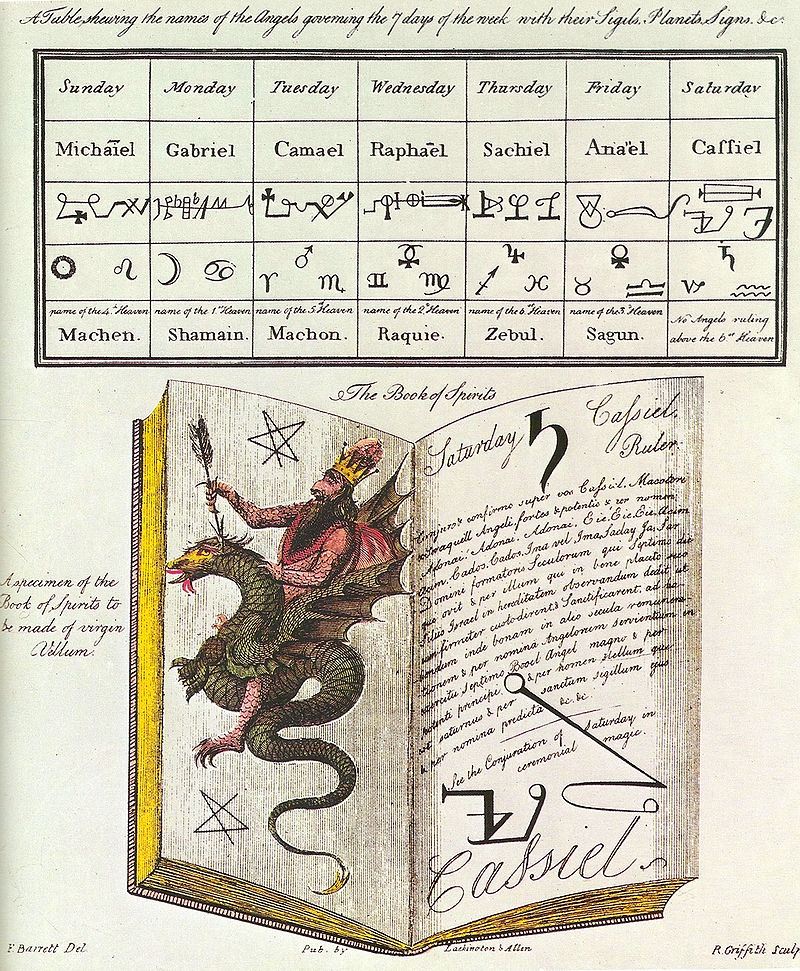 A Table, shewing the names of the Angels governing the 7 days of the week with their Sigils, Planets, Signs, &c.
Sunday Monday Tuesday Wednesday Thursday Friday Saturday
Michaïel Gabriel Camael Raphaël Sachiel Anaël Caſsiel
name of the 4.th Heaven name of the 1.st Heaven name of the 5.th Heaven name of the 2.d Heaven name of the 6.th Heaven name of the 3.d Heaven No Angels ruling
Machen. Shamain. Machon. Raquie. Zebul. Sagun. above the 6.th Heaven
The Book of Spirits
Saturday ♄ Caſsiel.
Ruler.
Conjuro & confirmo super vos Caſsiel. Macoton
Angeli fortes & potentis & per nomen
Adonai. Adonai. Adonai. Eie. Eie. Eie. Acim
Acim. Cados. Cados. Ima vel Ima. Saday Ja. Sar
Domini formatoris Seculorum qui Septimo die
quievit & per illum qui in bene placito suo
filiis Israel in hereditatem observandum dedit ut
firmiter custodirent & Sanctificarent, ad
inde bonam in alio secula remunera
tionem & per nomina Angelorum servientium in
exercitu Septimo Booel Angel magno & per
potenti principe & per homen stellum que
est saturnus & per sanctum sigillum ejus
& per nomina predicta &c. &c.
See the Conjuration of Saturday in
ceremonial magic.
Caſsiel.
A specimen of the
Book of Spirits to
be made of virgin
Vellum.
F. Barrett Del. Pub. by Lackington & Allen R. Griffith Sculp